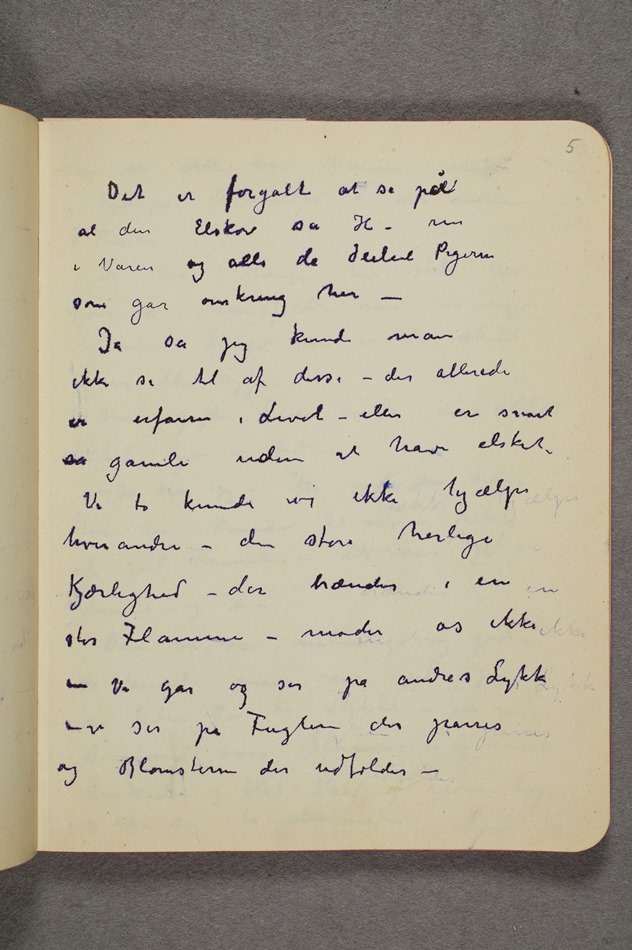 5
Det er forgalt at se på
al den Elskov sa H– nu
i Varen og alle de deilie Pigerne
som gar omkring her –
Ja sa jeg kunde man
ikke se til af disse – der allerede
er erfarne i Livet – eller er snart
sa gamle uden at have elsket.
Vi to kunde vi ikke hjælpe
hverandre – den store herlige
Kjærlighed – der brænder i en
stor Flamme – møder os ikke
– Vi gar og ser pa andres Lykke
– vi ser pa Fuglene der parres
og Blomsterne der udfolder –